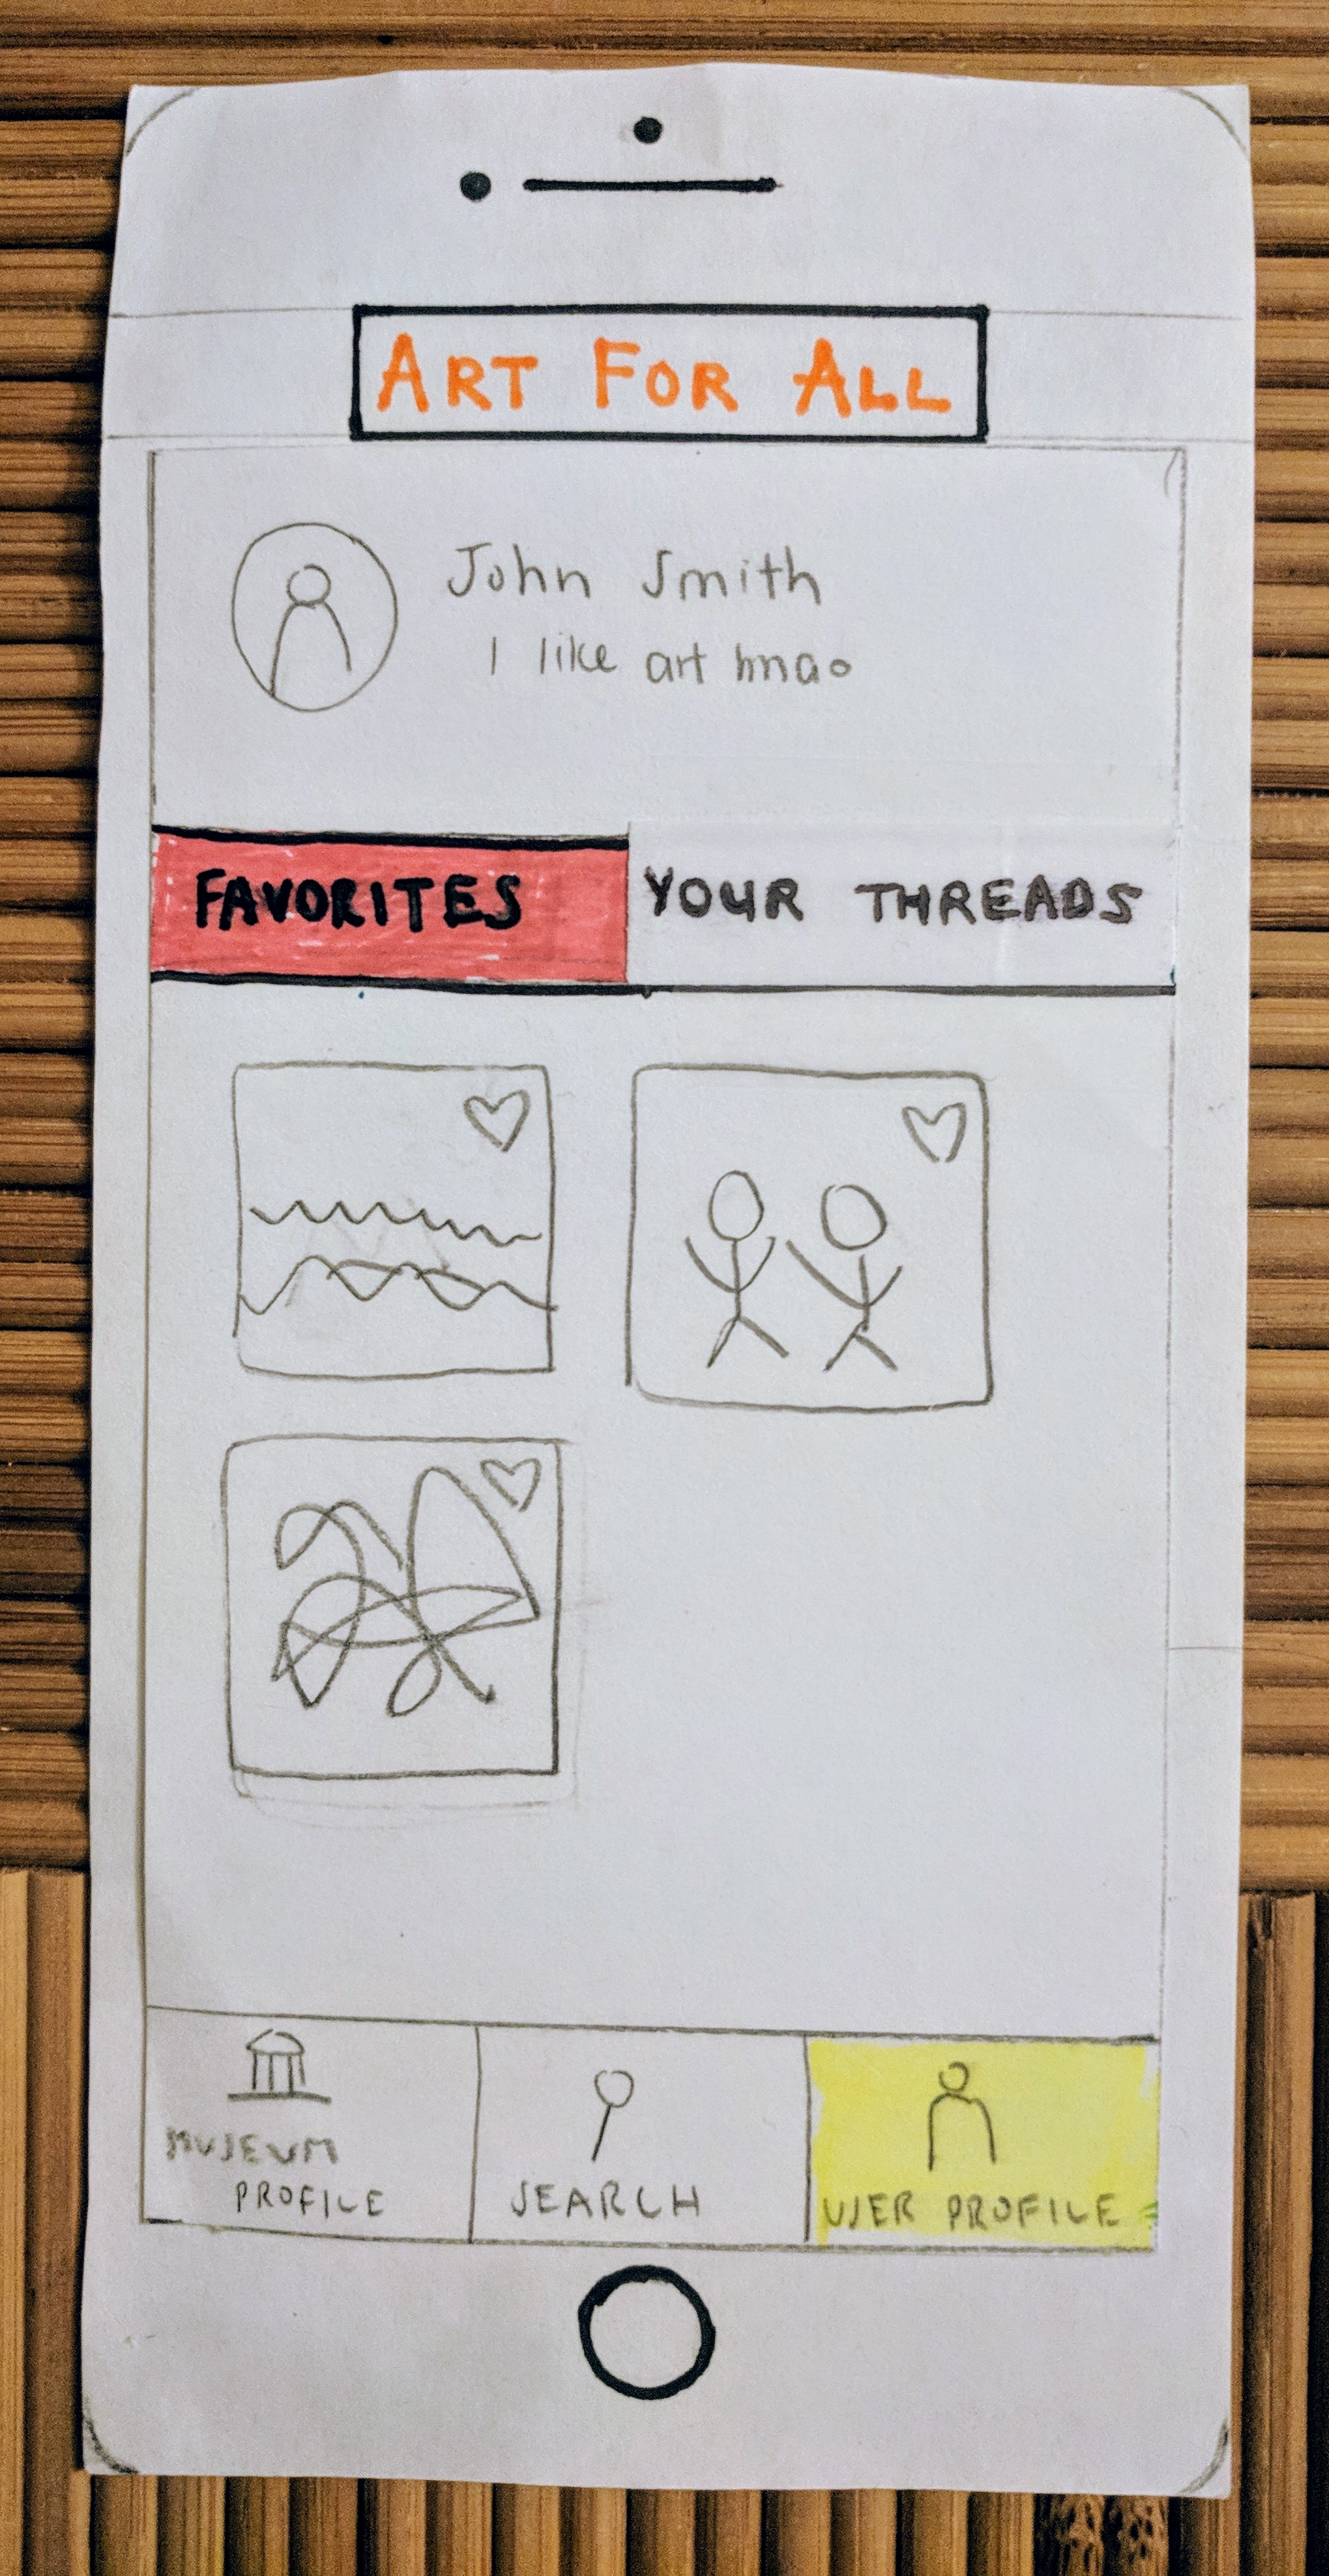 ART FOR ALL
John Smith
I like art lmao
FAVORITES
YOUR THREADS
MUSEUM
PROFILE
SEARCH
USER PROFILE